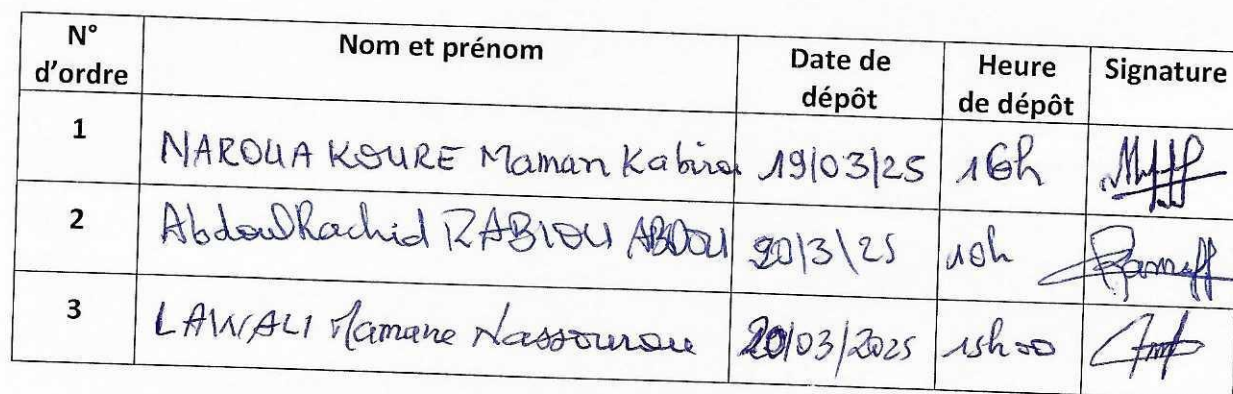 N° d'ordre Nom et prénom Date de dépôt Heure de dépôt Signature
1 NAROUA KOURE Maman Kabirou 19/03/25 16h
2 Abdoul Rachid RABIOU ABDOU 20/3/25 10h
3 LAWALI Mamane Nassourou 20/03/2025 15h00